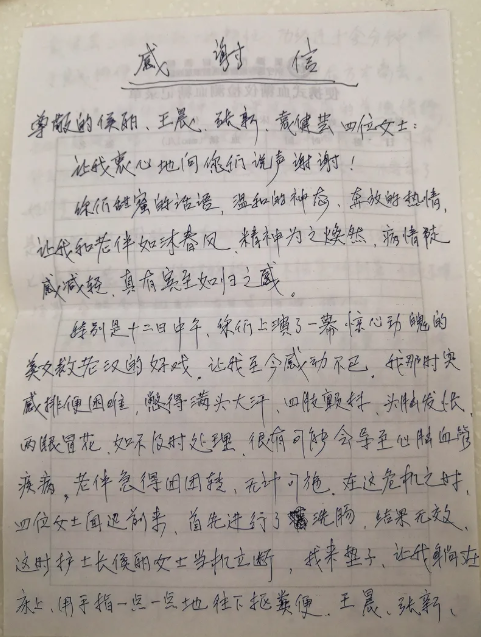 感谢信
尊敬的侯丽、王晨、张新、袁健芸四位女士:
让我衷心地向你们说声谢谢!
你们甜蜜的话语,温和的神态,奔放的热情,
让我和老伴如沐春风,精神为之焕然,病情顿
感减轻,真有宾至如归之感。
特别是十二日中午,你们上演了一幕惊心动魄的
美女救老汉的好戏,让我至今感动不已。我那时实
感排便困难,憋得满头大汗,四肢颤抖,头脑发胀,
两眼冒花,如不及时处理,很有可能会导至心脑血管
疾病。老伴急得团团转,无计可施。在这危机之时,
四位女士闻迅前来,首先进行了洗肠,结果无效,
这时护士长侯丽女士当机立断,找来垫子,让我躺在
床上,用手指一点一点地往下抠粪便。王晨、张新、